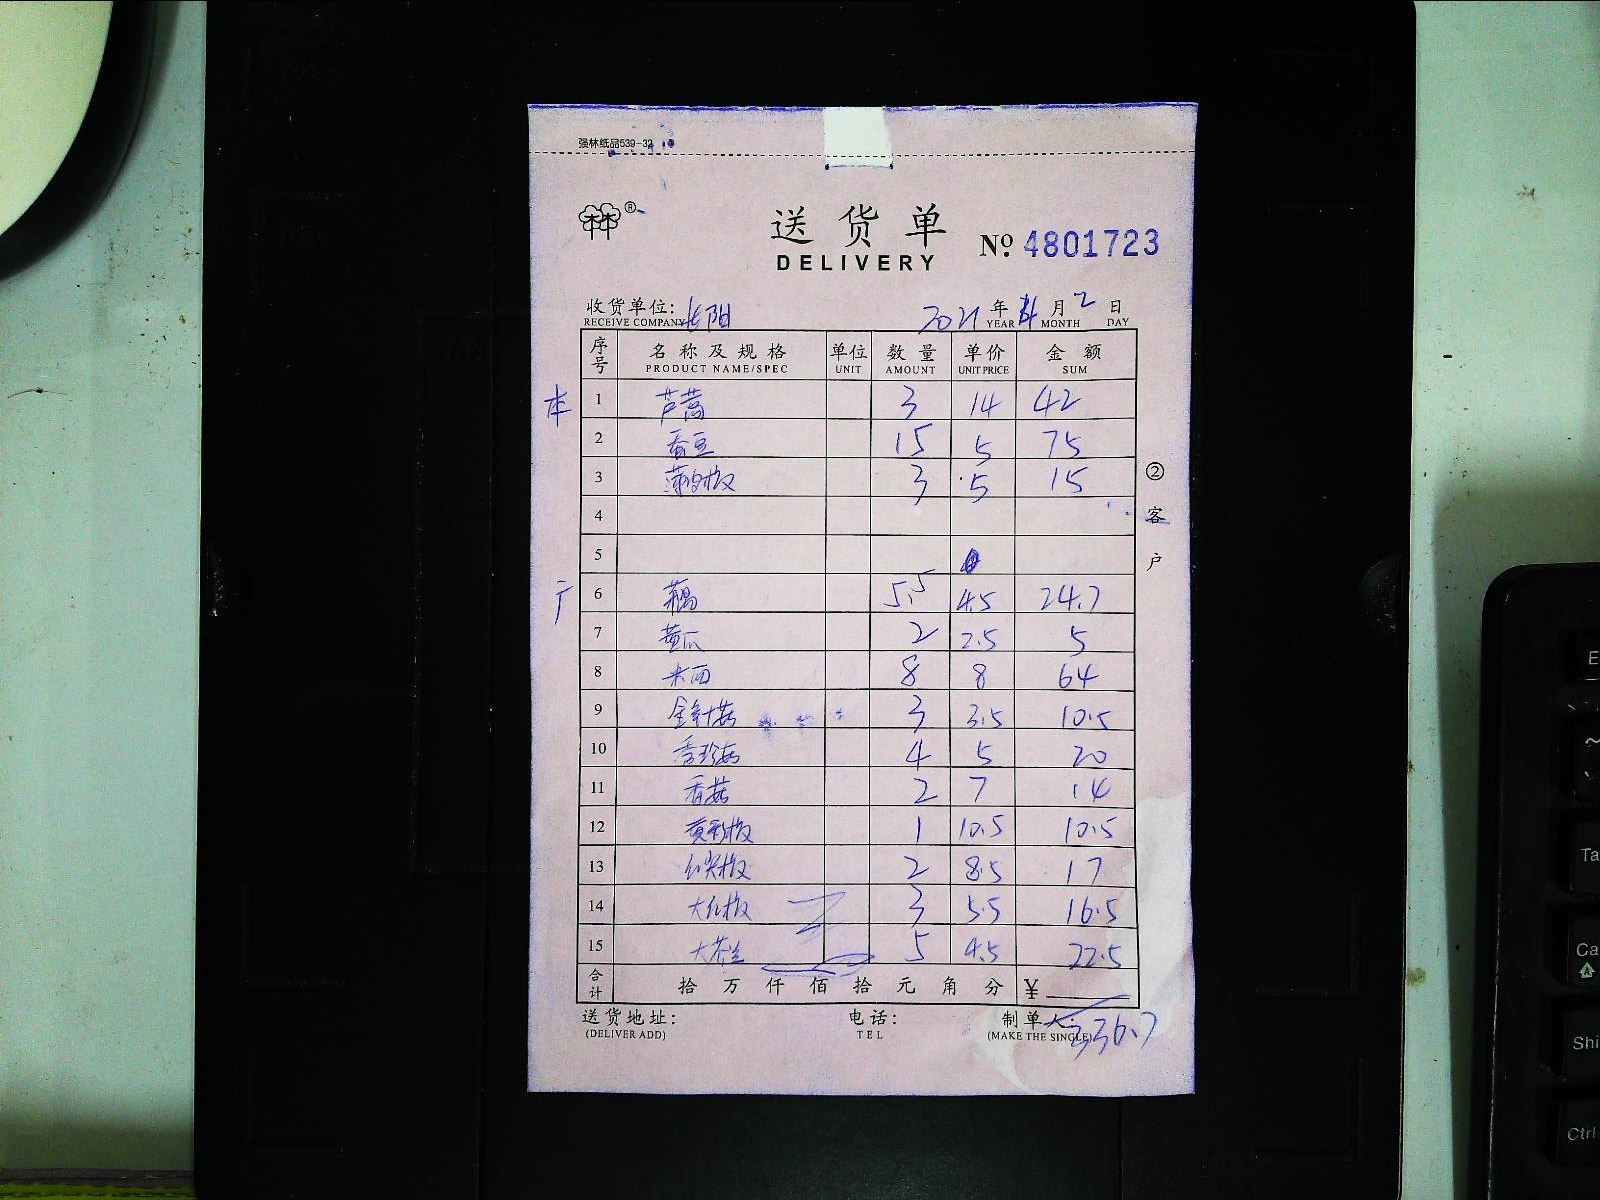 强林纸品539-32
送货单
DELIVERY
№ 4801723
收货单位: 长阳 2021 年 4 月 2 日
RECEIVE COMPANY YEAR MONTH DAY
序号 名称及规格 单位 数量 单价 金额
PRODUCT NAME/SPEC UNIT AMOUNT UNIT PRICE SUM
本 1 芦蒿 3 14 42
2 香豆 15 5 75
3 薄皮椒 3 5 15
4
5
广 6 藕 5.5 4.5 24.7
7 黄瓜 2 2.5 5
8 米西 8 8 64
9 金针菇 3 3.5 10.5
10 秀珍菇 4 5 20
11 香菇 2 7 14
12 黄彩椒 1 10.5 10.5
13 红尖椒 2 8.5 17
14 大红椒 3 5.5 16.5
15 大 5 4.5 22.5
合计 拾 万 仟 佰 拾 元 角 分 ¥
336.7
送货地址: 电话: 制单人:
(DELIVER ADD) TEL (MAKE THE SINGLE)
② 客户
E
Ta
Ca
Shi
Ctrl